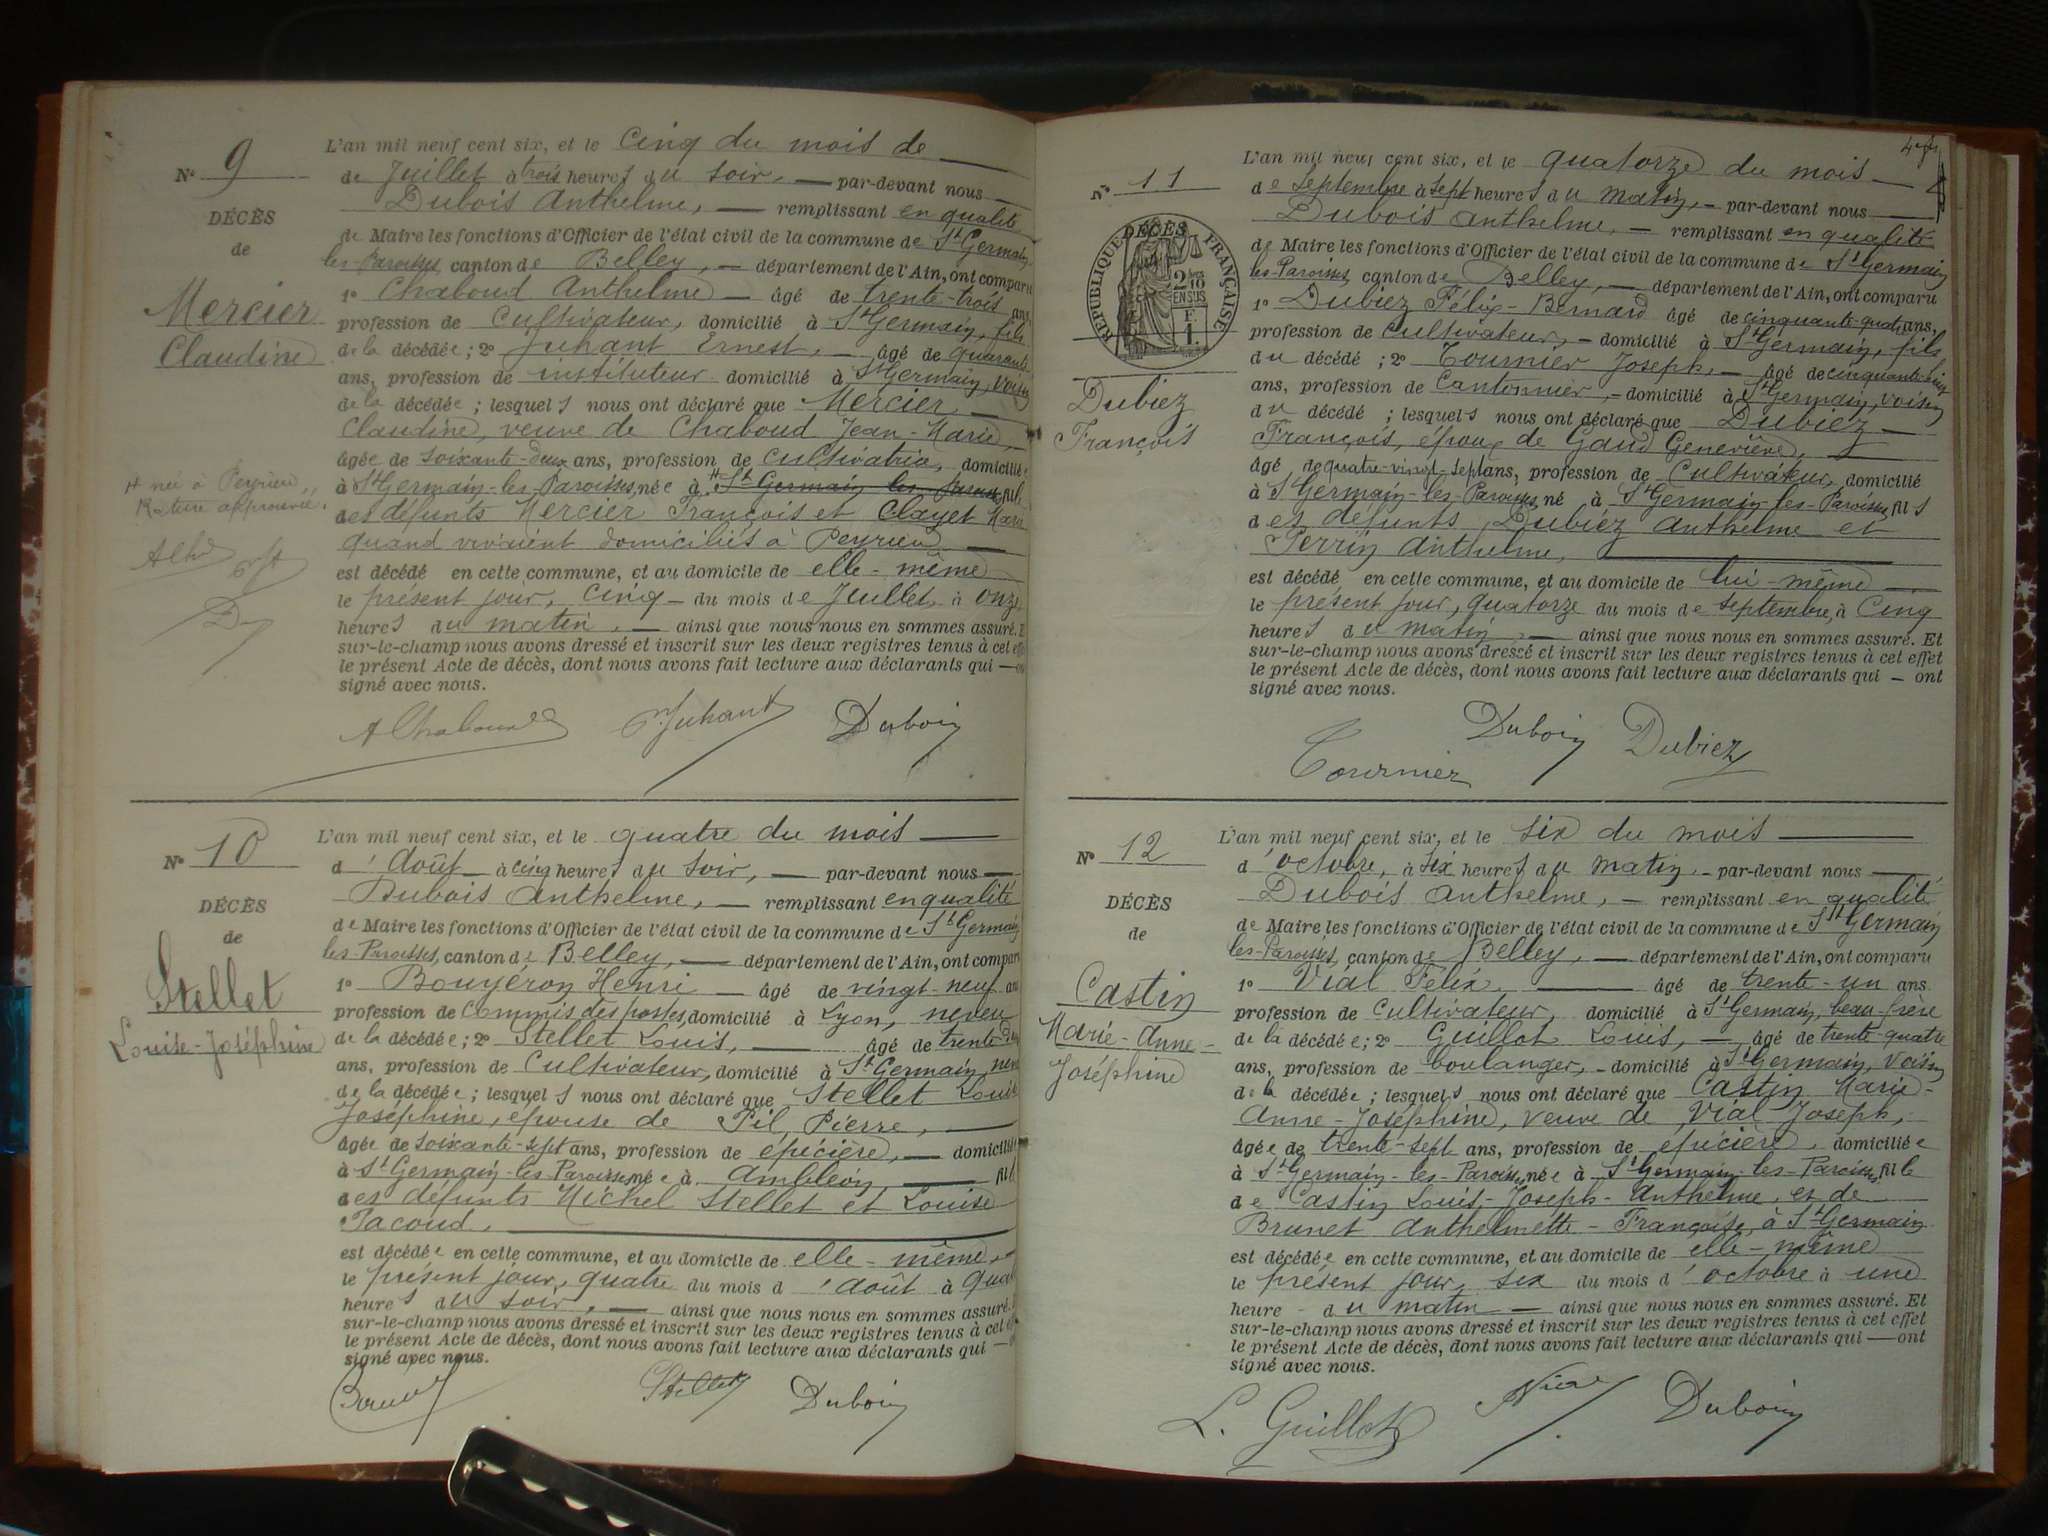 N° 9
DÉCÈS
de
Mercier
Claudine
née à Peyrieu
Rature approuvée.
L'an mil neuf cent six, et le cinq du mois de
de Juillet à trois heures du soir, par-devant nous
Dubois Anthelme, remplissant en qualité
de Maire les fonctions d'Officier de l'état civil de la commune de St Germain
les Paroisses, canton de Belley, département de l'Ain, ont comparu
1° Chaboud Anthelme âgé de trente-trois ans,
profession de Cultivateur, domicilié à St Germain, fils
de la décédée; 2° Juhant Ernest, âgé de quarante
ans, profession de instituteur domicilié à St Germain, voisin
de la décédée; lesquels nous ont déclaré que Mercier
Claudine, veuve de Chaboud Jean-Marie,
âgée de soixante-deux ans, profession de cultivatrice, domiciliée
à St Germain-les-Paroisses, née à St Germain les Paroisses, fille
des défunts Mercier François et Clayet Marie
quand vivaient domiciliés à Peyrieu
est décédé en cette commune, et au domicile de elle-même
le présent jour, cinq du mois de Juillet, à onze
heures du matin, ainsi que nous nous en sommes assuré. E
sur-le-champ nous avons dressé et inscrit sur les deux registres tenus à cet effe
le présent Acte de décès, dont nous avons fait lecture aux déclarants qui — on
signé avec nous.
A Chaboud Juhant Dubois
N° 10
DÉCÈS
de
Stellet
Louise-Joséphine
L'an mil neuf cent six, et le quatre du mois
d'Août à cinq heures du soir, par-devant nous
Dubois Anthelme, remplissant en qualité
de Maire les fonctions d'Officier de l'état civil de la commune de St Germain
les-Paroisses, canton de Belley, département de l'Ain, ont comparu
1° Bouyéron Henri âgé de vingt-neuf ans
profession de Commis des postes, domicilié à Lyon, neveu
de la décédée; 2° Stellet Louis, âgé de trente-deux
ans, profession de Cultivateur, domicilié à St Germain, neveu
de la décédée; lesquels nous ont déclaré que Stellet Louise
Joséphine, épouse de Pil, Pierre,
âgée de soixante-sept ans, profession de épicière, domiciliée
à St Germain-les-Paroisses née à Ambléon, fille
des défunts Michel Stellet et Louise
Pacoud,
est décédée en cette commune, et au domicile de elle-même,
le présent jour, quatre du mois d'août à quat
heures du soir, ainsi que nous nous en sommes assuré.
sur-le-champ nous avons dressé et inscrit sur les deux registres tenus à cet
le présent Acte de décès, dont nous avons fait lecture aux déclarants qui —
signé avec nous.
Stellet Dubois
N° 11
DÉCÈS
RÉPUBLIQUE FRANÇAISE
2/10 EN SUS
F. 1.
Dubiez
François
L'an mil neuf cent six, et le quatorze du mois
de Septembre à sept heures du matin, par-devant nous
Dubois Anthelme, remplissant en qualité
de Maire les fonctions d'Officier de l'état civil de la commune de St Germain
les-Paroisses, canton de Belley, département de l'Ain, ont comparu
1° Dubiez Félix-Bernard âgé de cinquante-quatre ans,
profession de cultivateur, domicilié à St Germain, fils
du décédé; 2° Tournier Joseph, âgé de cinquante-cinq
ans, profession de Cantonnier, domicilié à St Germain, voisin
du décédé; lesquels nous ont déclaré que Dubiez
François, époux de Gaud Geneviève,
âgé de quatre-vingt-sept ans, profession de Cultivateur, domicilié
à St Germain-les-Paroisses né à St Germain-les-Paroisses, fils
des défunts Dubiez Anthelme et
Perrin Anthelme,
est décédé en cette commune, et au domicile de lui-même
le présent jour, quatorze du mois de septembre, à cinq
heures du matin, ainsi que nous nous en sommes assuré. Et
sur-le-champ nous avons dressé et inscrit sur les deux registres tenus à cet effet
le présent Acte de décès, dont nous avons fait lecture aux déclarants qui — ont
signé avec nous.
Dubois Dubiez
Tournier
N° 12
DÉCÈS
de
Castin
Marie-Anne-
Joséphine
L'an mil neuf cent six, et le six du mois
d'octobre, à six heures du matin par-devant nous
Dubois Anthelme, remplissant en qualité
de Maire les fonctions d'Officier de l'état civil de la commune de St Germain
les-Paroisses, canton de Belley, département de l'Ain, ont comparu
1° Vial Félix, âgé de trente-un ans
profession de cultivateur, domicilié à St Germain, beau-frère
de la décédée; 2° Guillot Louis, âgé de trente-quatre
ans, profession de boulanger, domicilié à St Germain, voisin
de la décédée; lesquels nous ont déclaré que Castin Marie-
Anne-Joséphine, veuve de Vial Joseph,
âgée de trente-sept ans, profession de épicière, domiciliée
à St Germain-les-Paroisses, née à St Germain-les-Paroisses, fille
de Castin Louis-Joseph-Anthelme, et de
Brunet Anthelmette-Françoise, à St Germain
est décédée en cette commune, et au domicile de elle-même
le présent jour, six du mois d'octobre à une
heure du matin ainsi que nous nous en sommes assuré. Et
sur-le-champ nous avons dressé et inscrit sur les deux registres tenus à cet effet
le présent Acte de décès, dont nous avons fait lecture aux déclarants qui — ont
signé avec nous.
L. Guillot Dubois